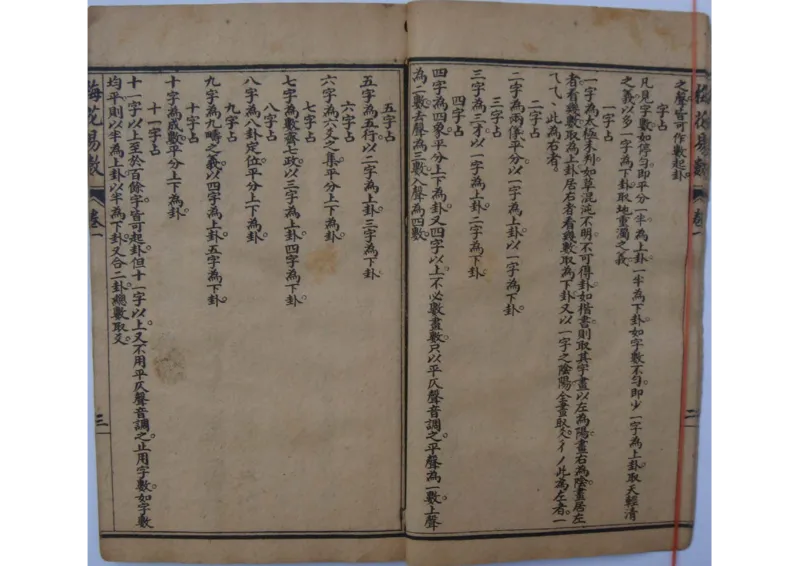 梅花易數
卷一
二
之聲皆可作數起卦
字占
凡見字數如停勻即平分一半為上卦一半為下卦如字數不勻即少一字為上卦取天輕清
之義以多一字為下卦取地重濁之義
一字占
一字為太極未判如草混沌不明不可得卦如楷書則取其字畫以左為陽畫右為陰畫居左
者看幾數取為上卦居右者看幾數取為下卦又以一字之陰陽全畫取爻彳丿此為左者一
乁乀丶此為右者
二字占
二字為兩儀平分以一字為上卦以一字為下卦
三字占
三字為三才以一字為上卦二字為下卦
四字占
四字為四象平分上下為卦又四字以上不必數畫數只以平仄聲音調之平聲為一數上聲
為二數去聲為三數入聲為四數
五字占
五字為五行以二字為上卦三字為下卦
六字占
六字為六爻之集平分上下為卦
七字占
七字為數齊七政以三字為上卦四字為下卦
八字占
八字為八卦定位平分上下為卦
九字占
九字為九疇之義以四字為上卦五字為下卦
十字占
十字為成數平分上下為卦
十一字占
十一字以上至於百餘字皆可起卦但十一字以上又不用平仄聲音調之止用字數如字數
均平則以半為上卦以半為下卦又合二卦總數取爻
梅花易數
卷一
三